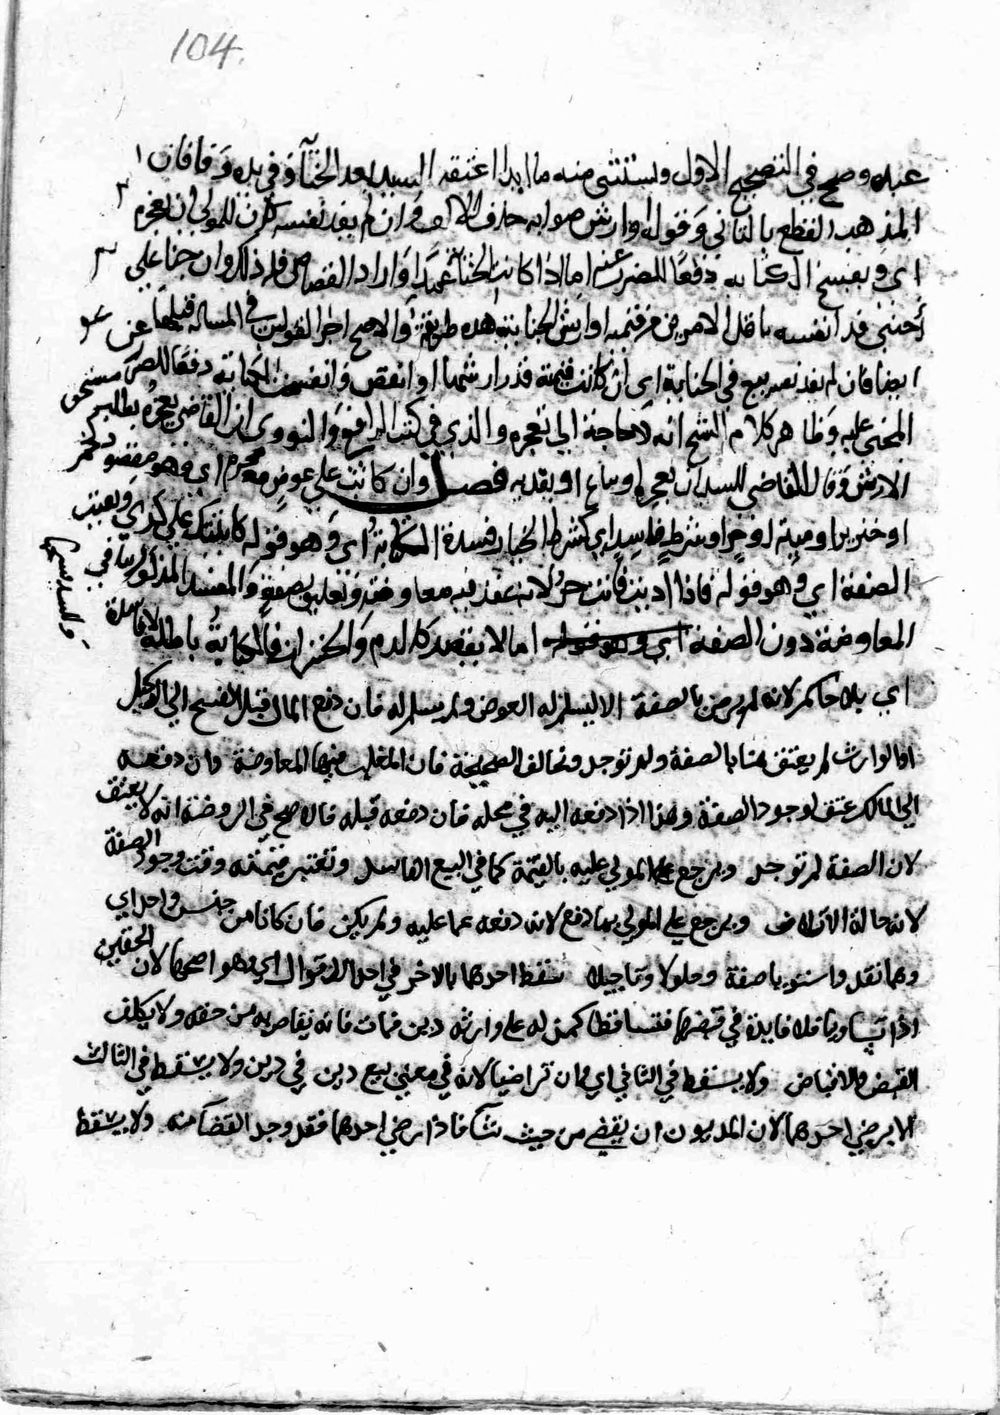 104
عبده وصحح في التصحيح الاول ويستثني منه ما اذا اعتقه السيد بعد الجناية وفي يده وفا فان
المذهب القطع بالثاني وقوله او ارش صوابه حذف الالف وان لم يفد نفسه كان للمولي ان يعجزه
اي ويفسخ الكتابة دفعا للضرر عنه اما اذا كانت الجناية عمدا واراد القصاص فله ذلك وان جنا علي
اجنبي فدا نفسه باقل الامرين من قيمته او ارش الجناية هذه طريقة والاصح اجرا القولين في المسالة قبلها
ايضا فان لم يفد نفسه بيع في الجناية اي ان كانت قيمته قدر ارشها او انقص وانفسخت الكتابة دفعا للضرر عن
المجني عليه وظاهر كلام الشيخ انه لا حاجة الي تعجيزه والذي في كتب الرافعي والنووي ان القاضي يعجزه بطلب مستحق
الارش وقال القاضي للسيد ان يعجزه او يباع او يفديه فصل وان كانت علي عوض محرم اي وهو مقصود كخمر
او خنزير او ميتة او شرط فاسد اي كشرط الخيار فسدت الكتابة اي وهو قوله كاتبتك علي كذا وبقيت
الصفة اي وهو قوله فاذا اديت فانت حر لانه عقد فيه معاوضة وتعليق بصفة والمفسد المذكور ينافي
المعاوضة دون الصفة اما لا يقصد كالدم والحشرات فالكتابة باطلة لا فاسدة
وللسيد فسخها
اي بلا حاكم لانه لم يرض بالصفة الا ليسلم له العوض ولم يسلم له فان دفع المال قبل الفسخ الي الوكيل
او الوارث لم يعتق هنا بالصفة ولم توجد وتخالف الصحيحة فان المغلب فيها المعاوضة وان دفعه
الي المالك عتق لوجود الصفة وهذا اذا دفعه اليه في محله فان دفعه قبله فالاصح في الروضة انه لا يعتق
لان الصفة لم توجد ويرجع المولي عليه بالقيمة كما في البيع الفاسد وتعتبر قيمته وقت وجود الصفة
لانه حالة الاتلاف ويرجع علي المولي بما دفع لانه دفعه عما عليه ولم يكن فان كانا من جنس واحد اي
وهما نقد واستويا صفة وحلولا وتاجيلا سقط احدهما بالاخر في احد الاقوال اي وهو اصحها لان الحقين
اذا تساويا فلا فايدة في قبضهما فتساقطا كمن له علي وارثه دين فمات فانه يتقاص به من حقه ولا يكلف
القبض والاقباض ولا يسقط في الثاني اي وان تراضيا لانه في معني بيع دين في دين ولا يسقط في الثالث
الا برضي احدهما لان المديون ان يقضي من حيث شا فاذا رضي احدهما فقد وجد القضا منه ولا يسقط